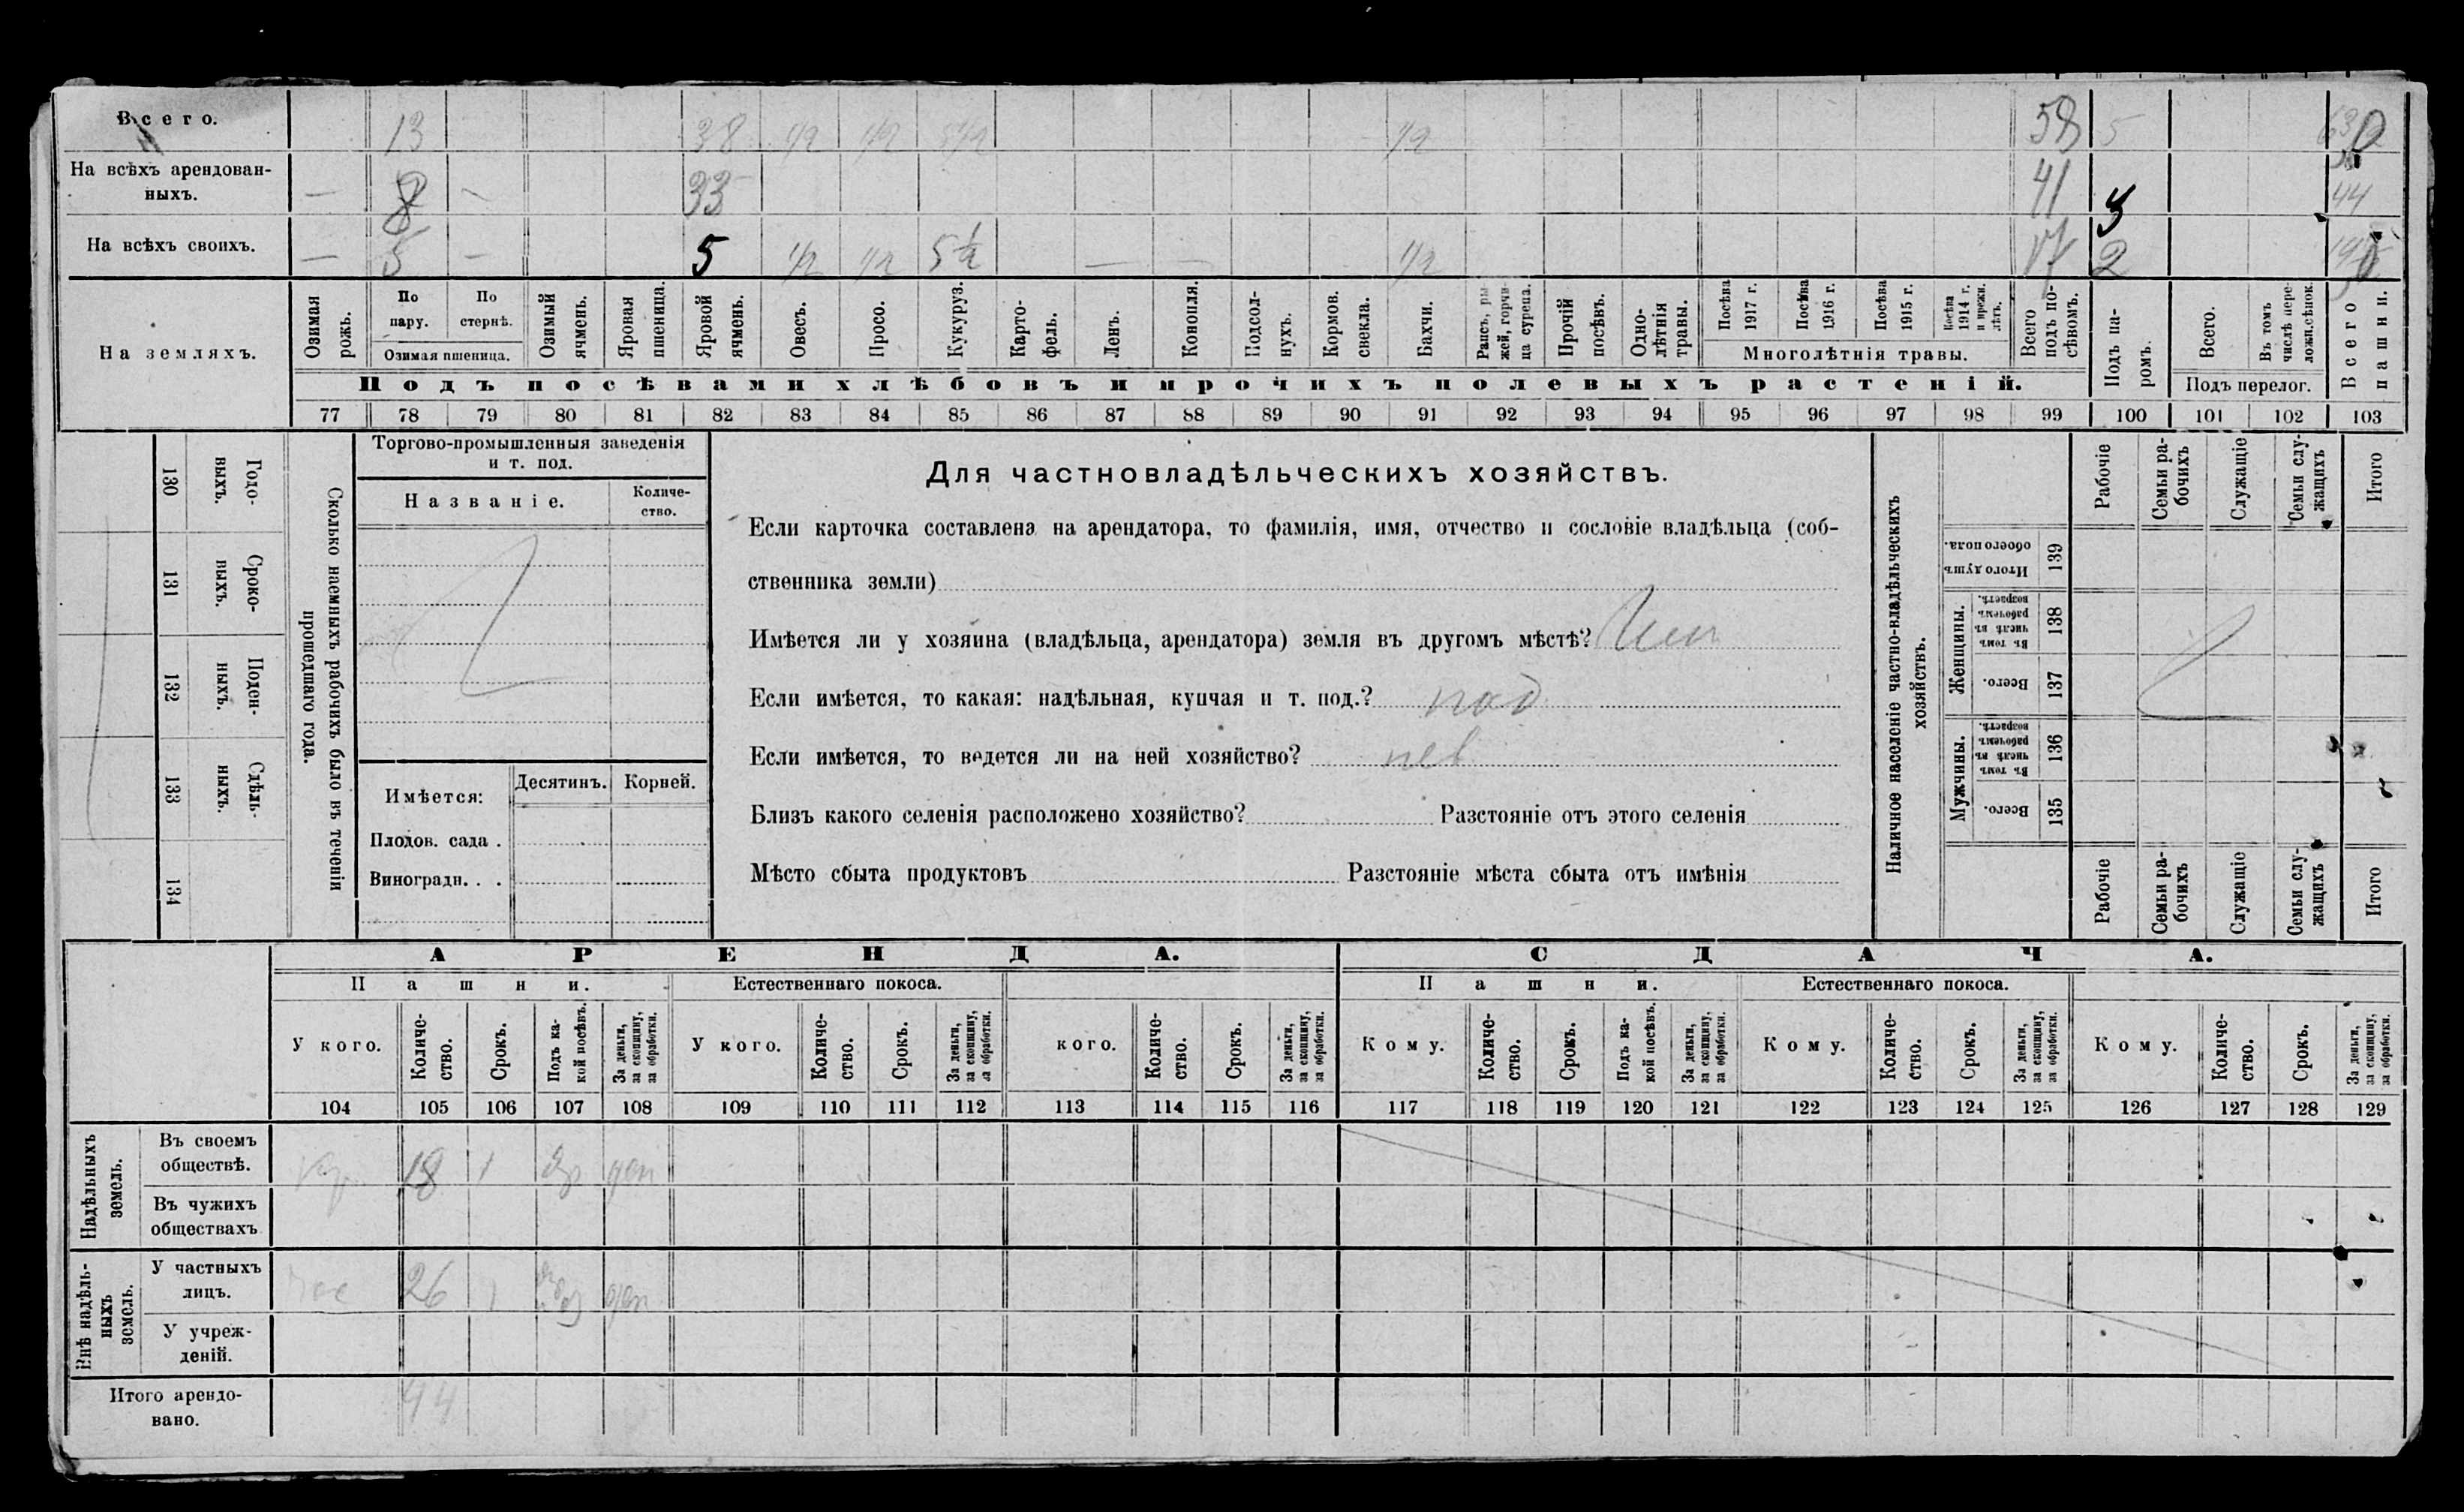 Всего. 13 38 1/2 1/2 5 1/2 1/2 58 5 63
На всѣхъ арендован-
ныхъ. — 8 — 33 41 3 44
На всѣхъ своихъ. — 5 — 5 1/2 1/2 5 1/2 — — 1/2 17 2 19
На земляхъ.
Озимая рожь.
По пару.
По стернѣ.
Озимая пшеница.
Озимый ячмень.
Яровая пшеница.
Яровой ячмень.
Овесъ.
Просо.
Кукуруз.
Карто-
фель.
Ленъ.
Конопля.
Подсол-
нухъ.
Кормов. свекла.
Бахчи.
Рапсъ, ры
жей, горчи-
ца сурепа.
Прочій посѣвъ.
Одно-
лѣтнія травы.
Посѣва 1917 г.
Посѣва 1916 г.
Посѣва 1915 г.
Посѣва 1914 г. и прежн. лѣтъ.
Многолѣтнія травы.
Всего подъ по-
сѣвомъ.
Подъ посѣвами хлѣбовъ и прочихъ полевыхъ растеній.
Подъ па-
ромъ.
Всего.
Въ томъ числѣ пере-
ложн.сѣнок.
Подъ перелог.
Всего пашни.
77 78 79 80 81 82 83 84 85 86 87 88 89 90 91 92 93 94 95 96 97 98 99 100 101 102 103
130 Годо-
выхъ.
131 Сроко-
ныхъ.
132 Поден-
ныхъ.
133 Сдѣль-
ныхъ.
134
Сколько наемныхъ рабочихъ было въ теченіи
прошедшаго года.
Торгово-промышленныя заведенія
и т. под.
Названіе.
Количе-
ство.
Имѣется: Десятинъ. Корней.
Плодов. сада .
Виноградн. . .
Для частновладѣльческихъ хозяйствъ.
Если карточка составлена на арендатора, то фамилія, имя, отчество и сословіе владѣльца (соб-
ственника земли)
Имѣется ли у хозяина (владѣльца, арендатора) земля въ другомъ мѣстѣ?
Если имѣется, то какая: надѣльная, купчая и т. под.? над
Если имѣется, то ведется ли на ней хозяйство?
Близъ какого селенія расположено хозяйство? Разстояніе отъ этого селенія
Мѣсто сбыта продуктовъ Разстояніе мѣста сбыта отъ имѣнія
Наличное населеніе частно-владѣльческихъ
хозяйствъ.
Рабочіе
Семьи ра-
бочихъ
Служащіе
Семьи слу-
жащихъ
Итого
Итого душъ обоего пола. 139
Женщины.
Въ томъ числѣ въ рабочемъ возрастѣ. 138
Всего. 137
Мужчины.
Въ томъ числѣ въ рабочемъ возрастѣ. 136
Всего. 135
Рабочіе
Семьи ра-
бочихъ
Служащіе
Семьи слу-
жащихъ
Итого
АРЕНДА. СДАЧА.
Пашни. Естественнаго покоса. Пашни. Естественнаго покоса.
У кого.
Количе-
ство.
Срокъ.
Подъ ка-
кой посѣвъ.
За деньги, за скопщину, за обработки.
У кого.
Количе-
ство.
Срокъ.
За деньги, за скопщину, за обработки.
кого.
Количе-
ство.
Срокъ.
За деньги, за скопщину, за обработки.
Кому.
Количе-
ство.
Срокъ.
Подъ ка-
кой посѣвъ.
За деньги, за скопщину, за обработки.
Кому.
Количе-
ство.
Срокъ.
За деньги, за скопщину, за обработки.
Кому.
Количе-
ство.
Срокъ.
За деньги, за скопщину, за обработки.
104 105 106 107 108 109 110 111 112 113 114 115 116 117 118 119 120 121 122 123 124 125 126 127 128 129
Надѣльныхъ
земель.
Въ своемъ
обществѣ. 18 1 яр ден
Въ чужихъ
обществахъ
Внѣ надѣль-
ныхъ
земель.
У частныхъ
лицъ. 26 1 ден
У учреж-
деній.
Итого арендо-
вано. 44